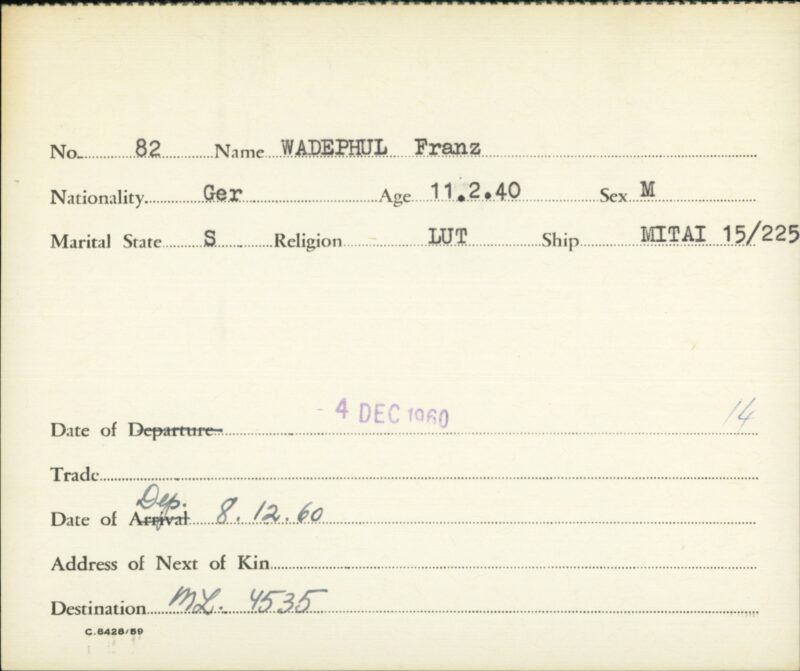 No. 82 Name WADEPHUL Franz
Nationality Ger Age 11.2.40 Sex M
Marital State S Religion LUT Ship MITAI 15/225
Date of Departure 4 DEC 1960 14
Trade
Dep.
Date of Arrival 8.12.60
Address of Next of Kin
Destination ML. 4535
C.5428/59